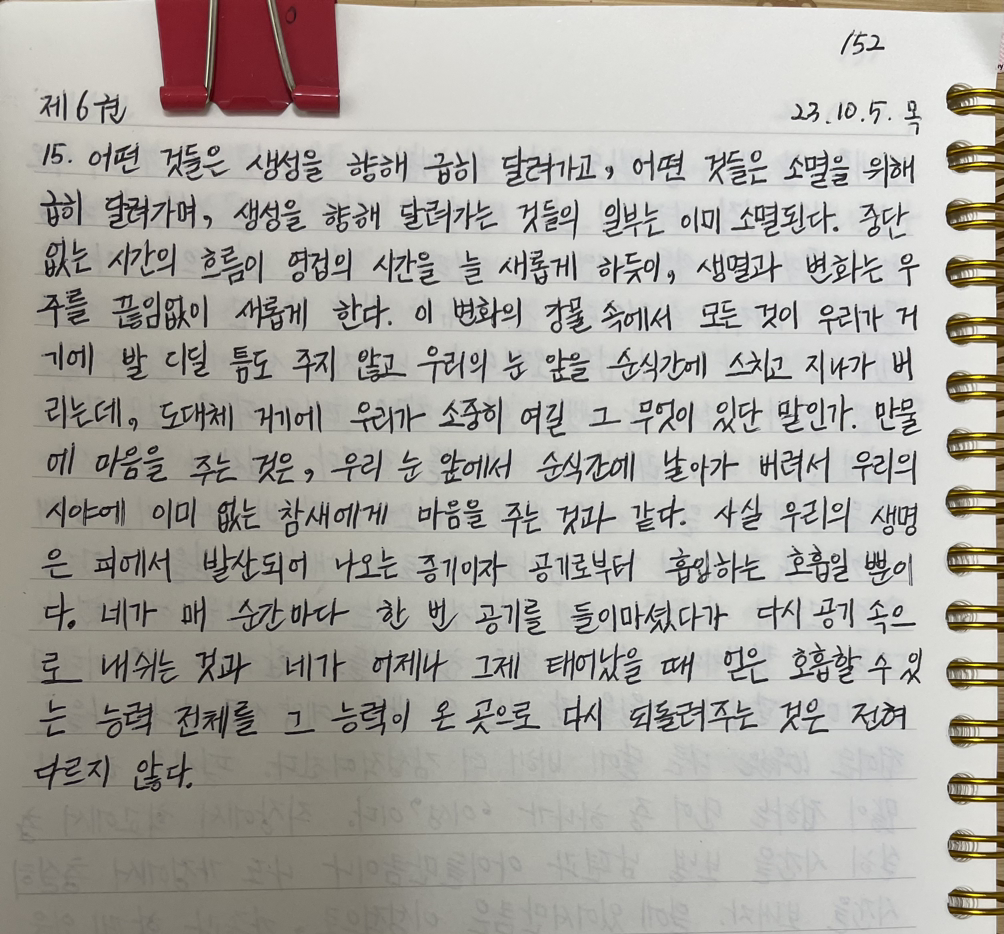 152
제6권 23.10.5. 목
15. 어떤 것들은 생성을 향해 급히 달려가고, 어떤 것들은 소멸을 위해
급히 달려가며, 생성을 향해 달려가는 것들의 일부는 이미 소멸된다. 중단
없는 시간의 흐름이 영겁의 시간을 늘 새롭게 하듯이, 생멸과 변화는 우
주를 끊임없이 새롭게 한다. 이 변화의 강물 속에서 모든 것이 우리가 거
기에 발 디딜 틈도 주지 않고 우리의 눈 앞을 순식간에 스치고 지나가 버
리는데, 도대체 거기에 우리가 소중히 여길 그 무엇이 있단 말인가. 만물
에 마음을 주는 것은, 우리 눈 앞에서 순식간에 날아가 버려서 우리의
시야에 이미 없는 참새에게 마음을 주는 것과 같다. 사실 우리의 생명
은 피에서 발산되어 나오는 증기이자 공기로부터 흡입하는 호흡일 뿐이
다. 네가 매 순간마다 한 번 공기를 들이마셨다가 다시 공기 속으
로 내쉬는 것과 네가 어제나 그제 태어났을 때 얻은 호흡할 수 있
는 능력 전체를 그 능력이 온 곳으로 다시 되돌려주는 것은 전혀
다르지 않다.